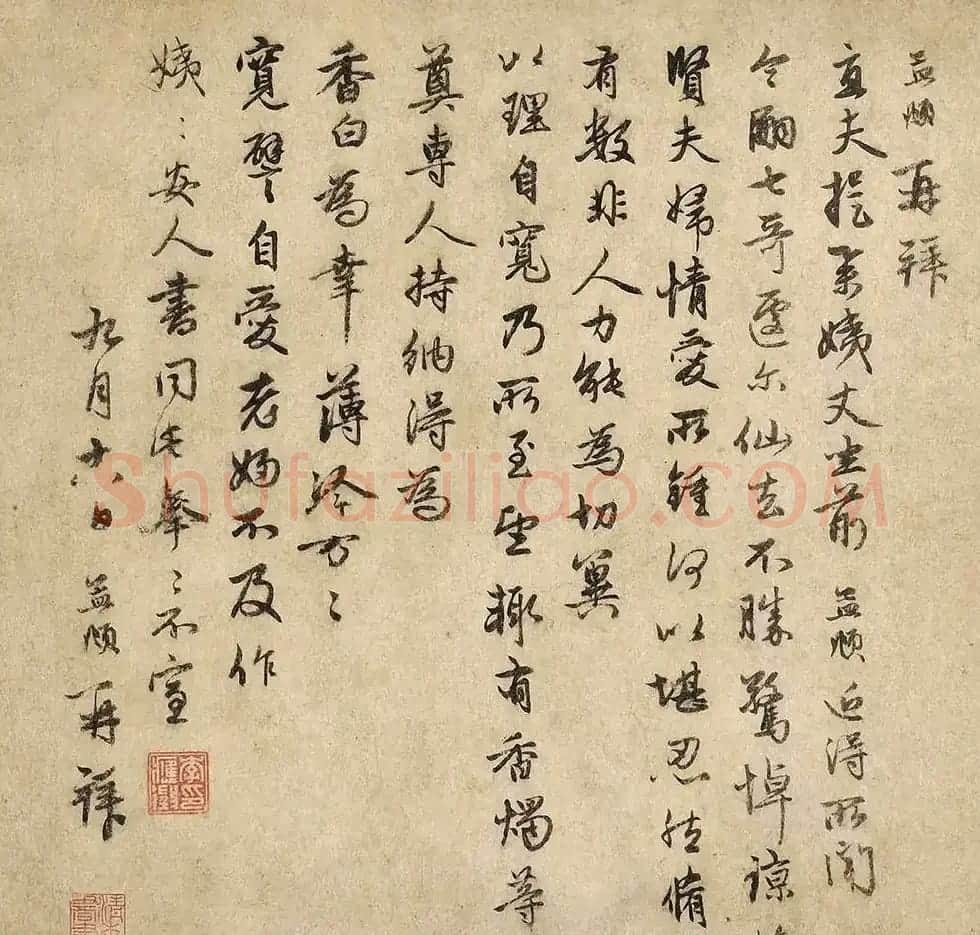 孟頫再拜
宜夫提舉姨丈坐前 孟頫近得所聞
令嗣七哥遽尔仙去不勝驚悼諒
賢夫婦情愛所鍾何以堪忍然脩
有數非人力能為切冀
以理自寬乃所至望輒有香燭等
奠專人持納得為
香白為幸薄冷万〻
寬譬自愛老婦不及作
姨〻安人書同此拳〻不宣
九月十八日 孟頫再拜
Shufaziliao.COM